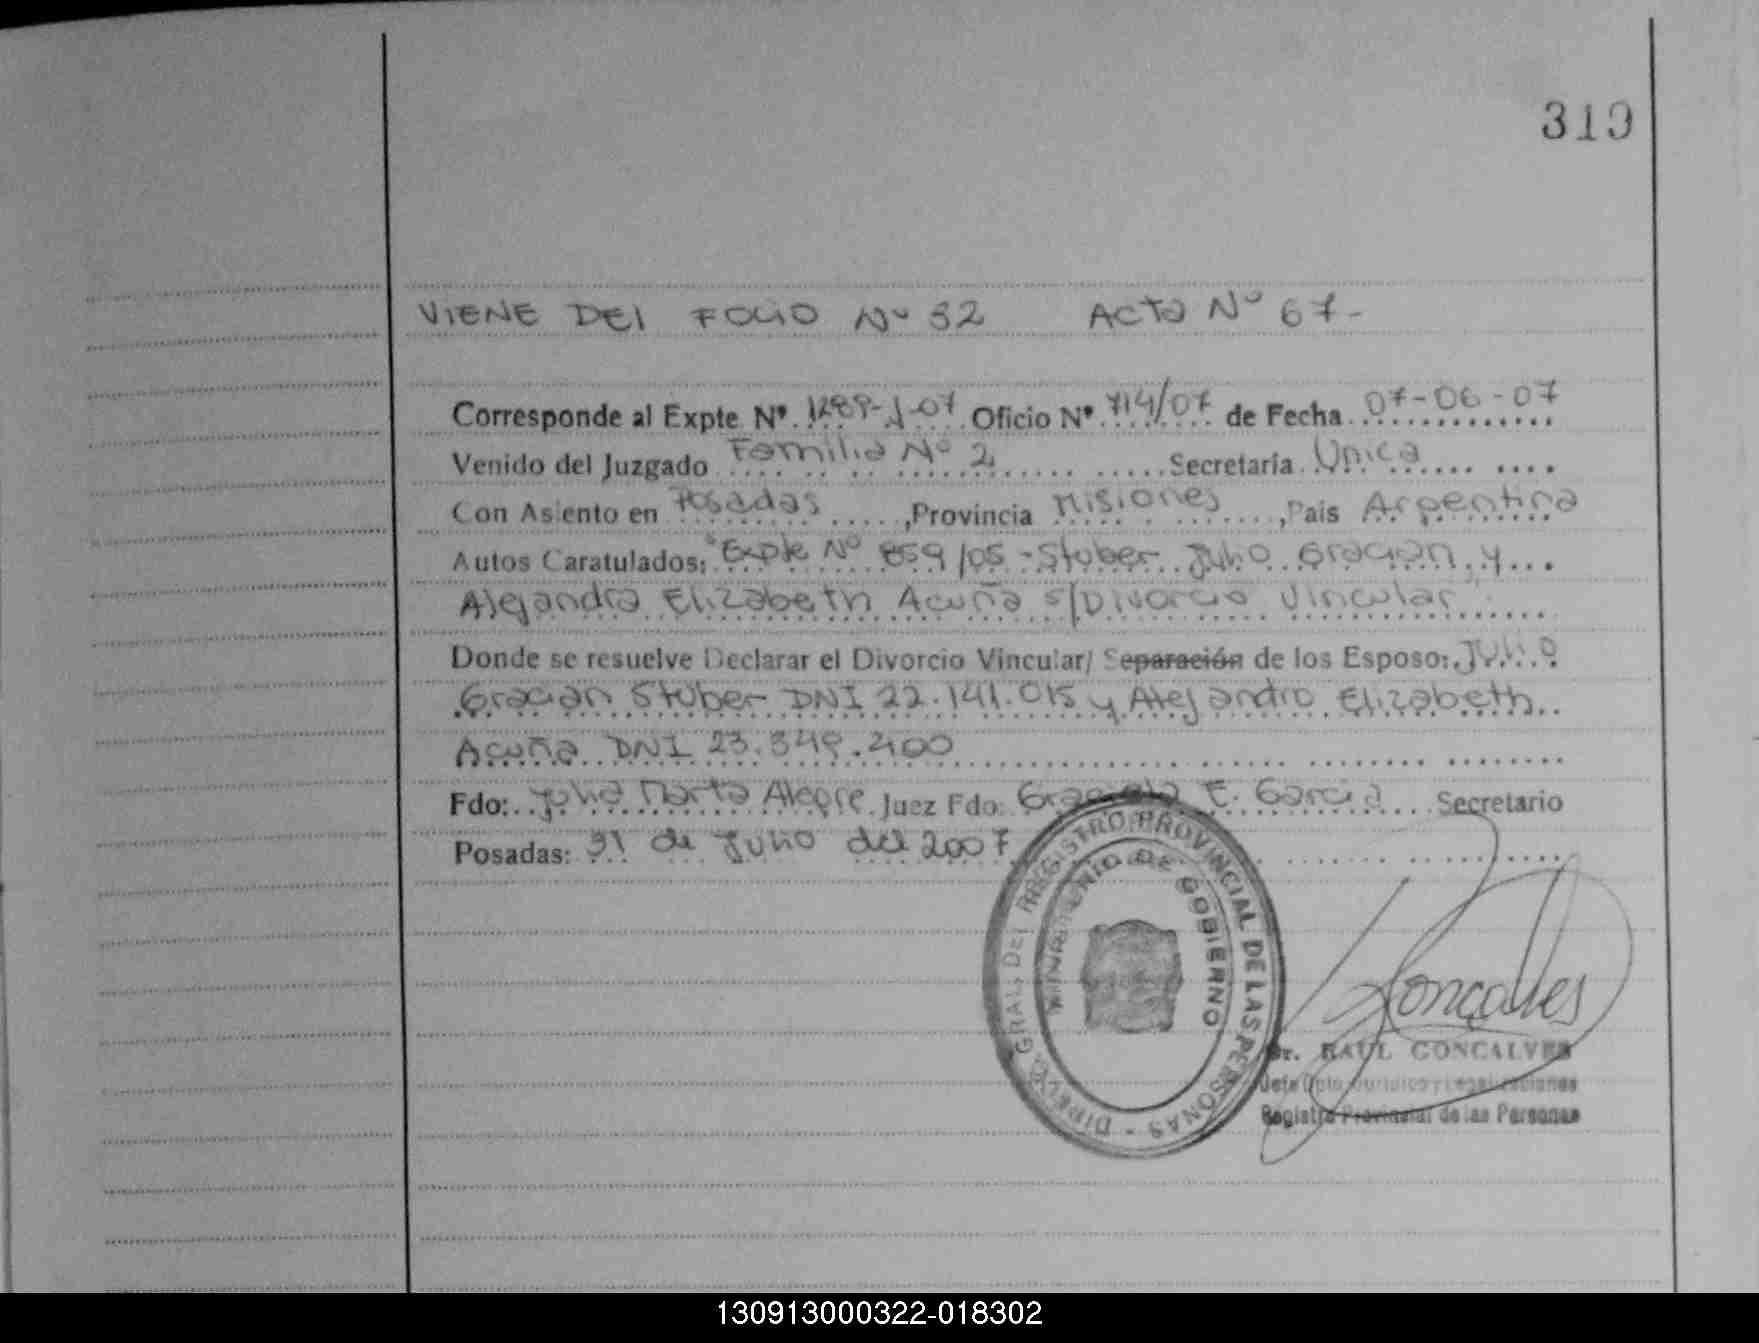 319
VIENE DEL FOLIO Nº 32 ACTA Nº 67-
Corresponde al Expte Nº. 1289-J-07 Oficio Nº. 714/07 de Fecha. 07-06-07
Venido del Juzgado Familia Nº 2 Secretaría. Unica
Con Asiento en Posadas, Provincia Misiones, Pais Argentina
Autos Caratulados: "Expte Nº 859/05 - Stuber Julio Gracian y
Alejandra Elizabeth Acuña s/Divorcio Vincular"
Donde se resuelve Declarar el Divorcio Vincular/ Separación de los Esposo: Julio
Gracian Stuber DNI 22.141.015 y Alejandra Elizabeth
Acuña DNI 23.349.400
Fdo: Julia Marta Alegre. Juez Fdo: Graciela E. Garcia Secretario
Posadas: 31 de Julio del 2007
DIREC. GRAL. DEL REGISTRO PROVINCIAL DE LAS PERSONAS -
MINISTERIO DE GOBIERNO
Goncalves
Dr. RAUL GONCALVES
Jefe Dpto. Jurídico y Legalizaciones
Registro Provincial de las Personas
130913000322-018302